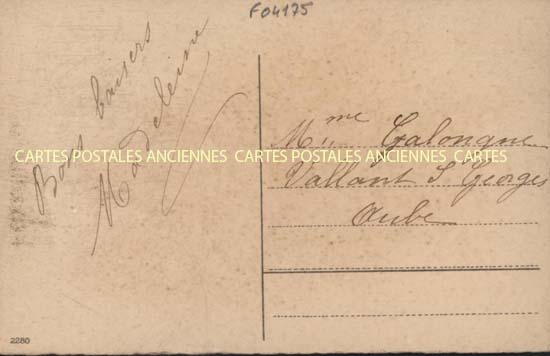 F04175
Bons baisers
Madeleine
Mme Galongne
CARTES POSTALES ANCIENNES CARTES POSTALES ANCIENNES CARTES
Vallant S Georges
Aube
2280